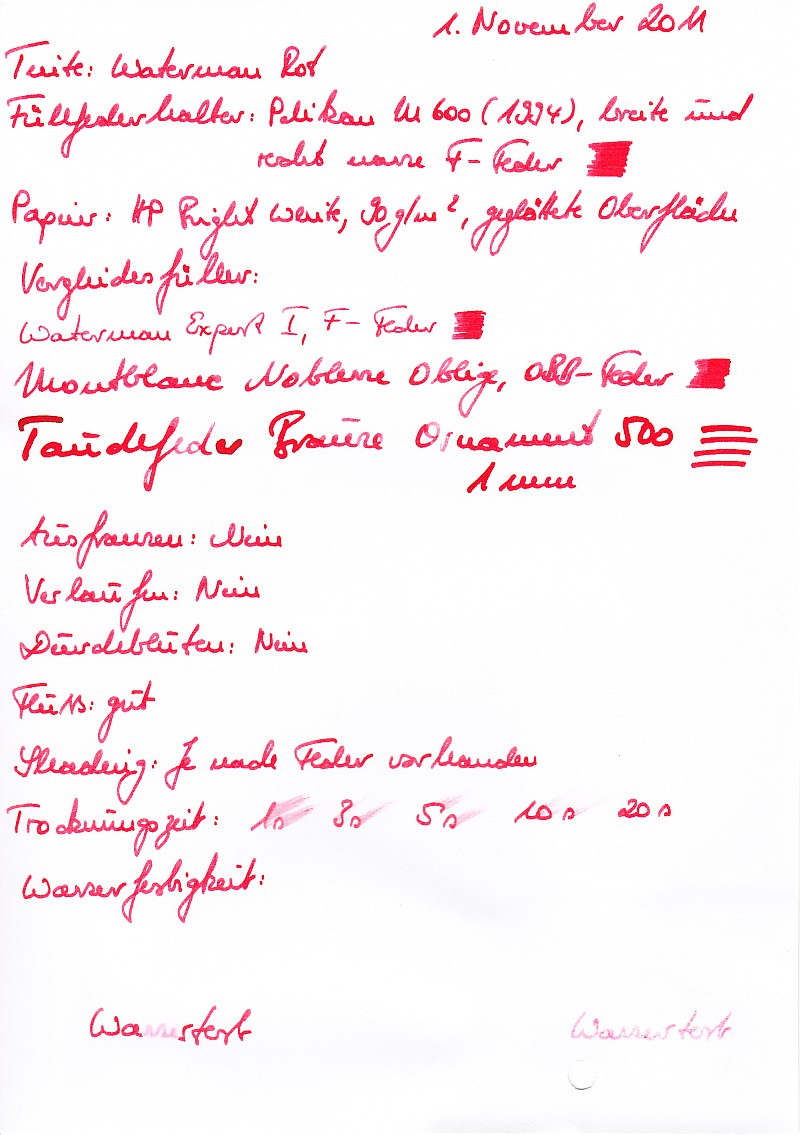 1. November 2011
Tinte: Waterman Rot
Füllfederhalter: Pelikan M 600 (1994), breite und
recht nasse F-Feder
Papier: HP Bright White, 90 g/m², geglättete Oberfläche
Vergleichsfüller:
Waterman Expert I, F-Feder
Montblanc Noblesse Oblige, OBB-Feder
Tauchfeder Brause Ornament 500
1 mm
Ausfransen: Nein
Verlaufen: Nein
Durchbluten: Nein
Fluss: gut
Shading: Je nach Feder vorhanden
Trocknungszeit: 1s 3s 5s 10s 20s
Wasserfestigkeit:
Wassertest Wassertest